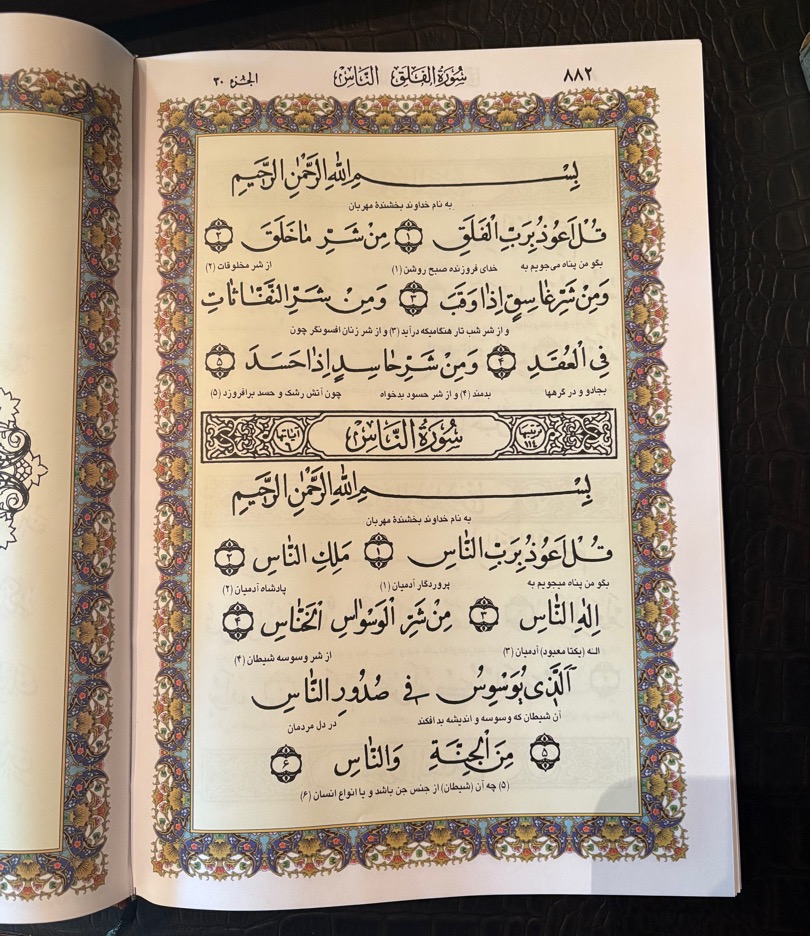 الجزء ٣٠ سُورَةُ الفَلَقِ النَّاسِ ٨٨٢
بِسْمِ اللهِ الرَّحْمٰنِ الرَّحِيمِ
به نام خداوند بخشندهٔ مهربان
قُلْ اَعُوذُ بِرَبِّ الْفَلَقِ ١ مِنْ شَرِّ مٰا خَلَقَ ٢
بگو من پناه می‌جویم به خدای فروزنده صبح روشن (۱) از شر مخلوقات (۲)
وَمِنْ شَرِّ غٰاسِقٍ اِذٰا وَقَبَ ٣ وَمِنْ شَرِّ النَّفّٰاثٰاتِ
و از شر شب تار هنگامیکه درآید (۳) و از شر زنان افسونگر چون
فِي الْعُقَدِ ٤ وَمِنْ شَرِّ حٰاسِدٍ اِذٰا حَسَدَ ٥
بجادو و در گرهها بدمند (۴) و از شر حسود بدخواه چون آتش رشک و حسد برافروزد (۵)
ترتیبها ١١٤ سُورَةُ النَّاسِ آیاتها ٦
بِسْمِ اللهِ الرَّحْمٰنِ الرَّحِيمِ
به نام خداوند بخشندهٔ مهربان
قُلْ اَعُوذُ بِرَبِّ النّٰاسِ ١ مَلِكِ النّٰاسِ ٢
بگو من پناه میجویم به پروردگار آدمیان (۱) پادشاه آدمیان (۲)
اِلٰهِ النّٰاسِ ٣ مِنْ شَرِّ الْوَسْوٰاسِ الْخَنّٰاسِ ٤
اله (یکتا معبود) آدمیان (۳) از شر وسوسه شیطان (۴)
اَلَّذِي يُوَسْوِسُ فِي صُدُورِ النّٰاسِ
آن شیطان که وسوسه و اندیشه بد افکند در دل مردمان
٥ مِنَ الْجِنَّةِ وَالنّٰاسِ ٦
(۵) چه آن (شیطان) از جنس جن باشد و یا انواع انسان (۶)